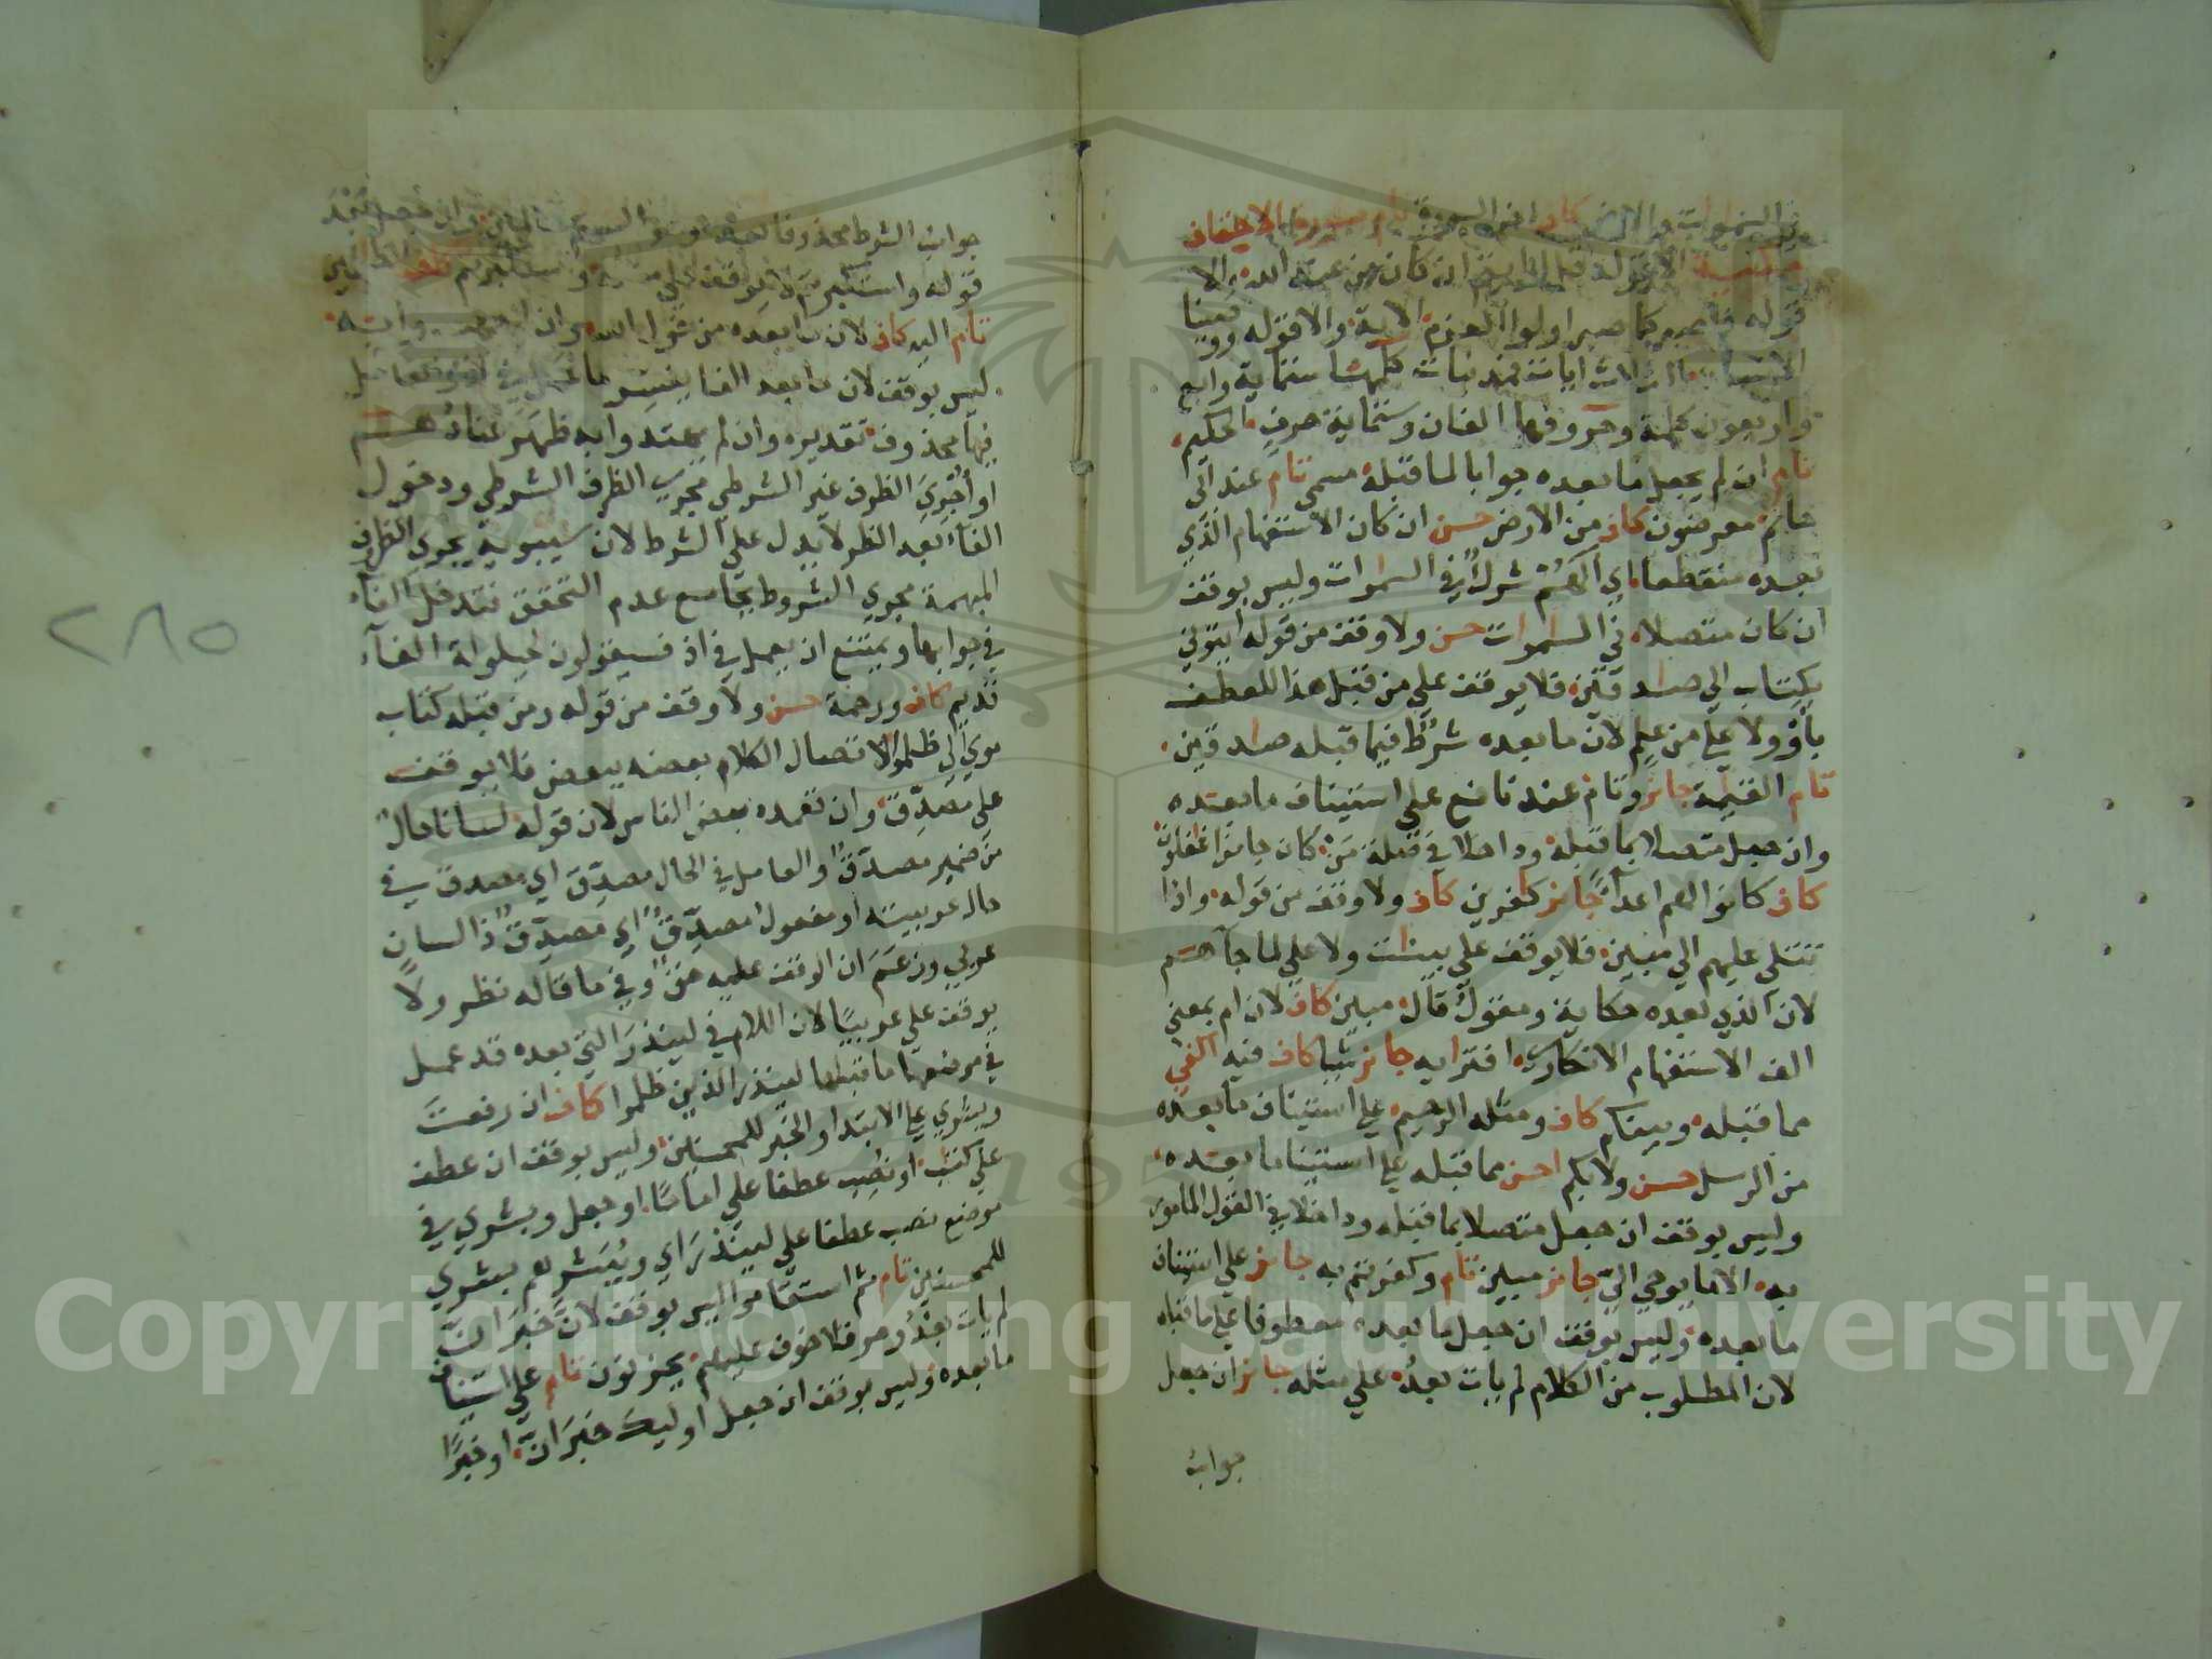 في السموات والارض كاف اخر السورة تام سورة الاحقاف
مكية الا قوله قل ارايتم ان كان من عند الله والا
قوله فاصبر كما صبر اولوا العزم الاية والا قوله ووصينا
الانسان الثلاث ايات فمدنيات كلمها ستماية واربع
واربعون كلمة وحروفها الفان وستماية حرف الحكيم
تام ان لم يجعل ما بعده جوابا لما قبله مسمى تام عند ابي
حاتم معرضون كاف من الارض حسن ان كان الاستفهام الذي
بعده منقطعا اي الهم شرك في السموات وليس بوقف
ان كان متصلا في السموات حسن ولا وقف من قوله ايتوني
بكتاب الي صادقين فلا يوقف علي من قبل هذا للعطف
باو ولا علي من علم لان ما بعده شرط فيما قبله صادقين
تام القيمة جائز وتام عند نافع علي استيناف ما بعده
وان جعل متصلا بما قبله وداخلا في صلة من كان جائزا غفلون
كاف كانوا لهم اعداً جائز كفرين كاف ولا وقف من قوله واذا
تتلي عليهم الي مبين فلا يوقف علي بينت ولا علي لما جآهم
لان الذي بعده حكاية ومقول قال مبين كاف لان ام بمعني
الف الاستفهام الانكاري افتريه جائز شيا كاف فيه اكفي
مما قبله وبينكم كاف ومثله الرحيم علي استيناف ما بعده
من الرسل حسن ولا بكم احسن مما قبله علي استيناف ما بعده
وليس بوقف ان جعل متصلا بما قبله وداخلا في القول المامور
به الا ما يوحي اليّ جائز مبين تام وكفرتم به جائز علي استيناف
ما بعده وليس بوقف ان جعل ما بعده معطوفا علي ما قبله
لان المطلوب من الكلام لم يات بعدُ علي مثله جائز ان جعل
جواب
جواب الشرط محذوفا
قوله واستكبرتم لا يوقف علي مثله
تام اليه كاف لان ما بعده من قول الله وان
ليس بوقف لان ما بعد الفا يفسر ما عمل في اذ والعامل
فيها محذوف تقديره وان لم يهتدوا به ظهر عنادهم
او اجري الظرف غير الشرطي مجري الظرف الشرطي ودخول
الفاء بعد الظرف لا يدل علي الشرط لان سيبويه يجري الظروف
المبهمة مجري الشروط بجامع عدم التحقق فتدخل الفاء
في جوابها ويمتنع ان يعمل في اذ فسيقولون لحيلولة الفاء
قديم كاف ورحمة حسن ولا وقف من قوله ومن قبله كتاب
موسي الي ظلموا لاتصال الكلام بعضه ببعض فلا يوقف
علي مصدق وان تعمده بعض الناس لان قوله لسانا حال
من ضمير مصدق والعامل في الحال مصدق اي مصدق في
حال عربيته او مفعول مصدق اي مصدق ذا لسان
عربي وزعم ان الوقف عليه حق وفي ما قاله نظر ولا
يوقف علي عربيا لان اللام في لينذر التي بعده قد عمل
في موضعها ما قبلها لينذر الذين ظلموا كاف ان رفعت
وبشري علي الابتدا والخبر للمحسنين وليس بوقف ان عطف
علي كتب او نصب عطفا علي اماما او جعل وبشري في
موضع نصب عطفا علي لينذر اي ويبشرهم بشري
للمحسنين تام ثم استقاموا ليس بوقف لان خبر ان
لم يات بعد وهو فلا خوف عليهم يحزنون تام علي استيناف
ما بعده وليس بوقف ان جعل اوليك خبر ان او خبرًا
٢٨٥
Copyright © King Saud University
1957